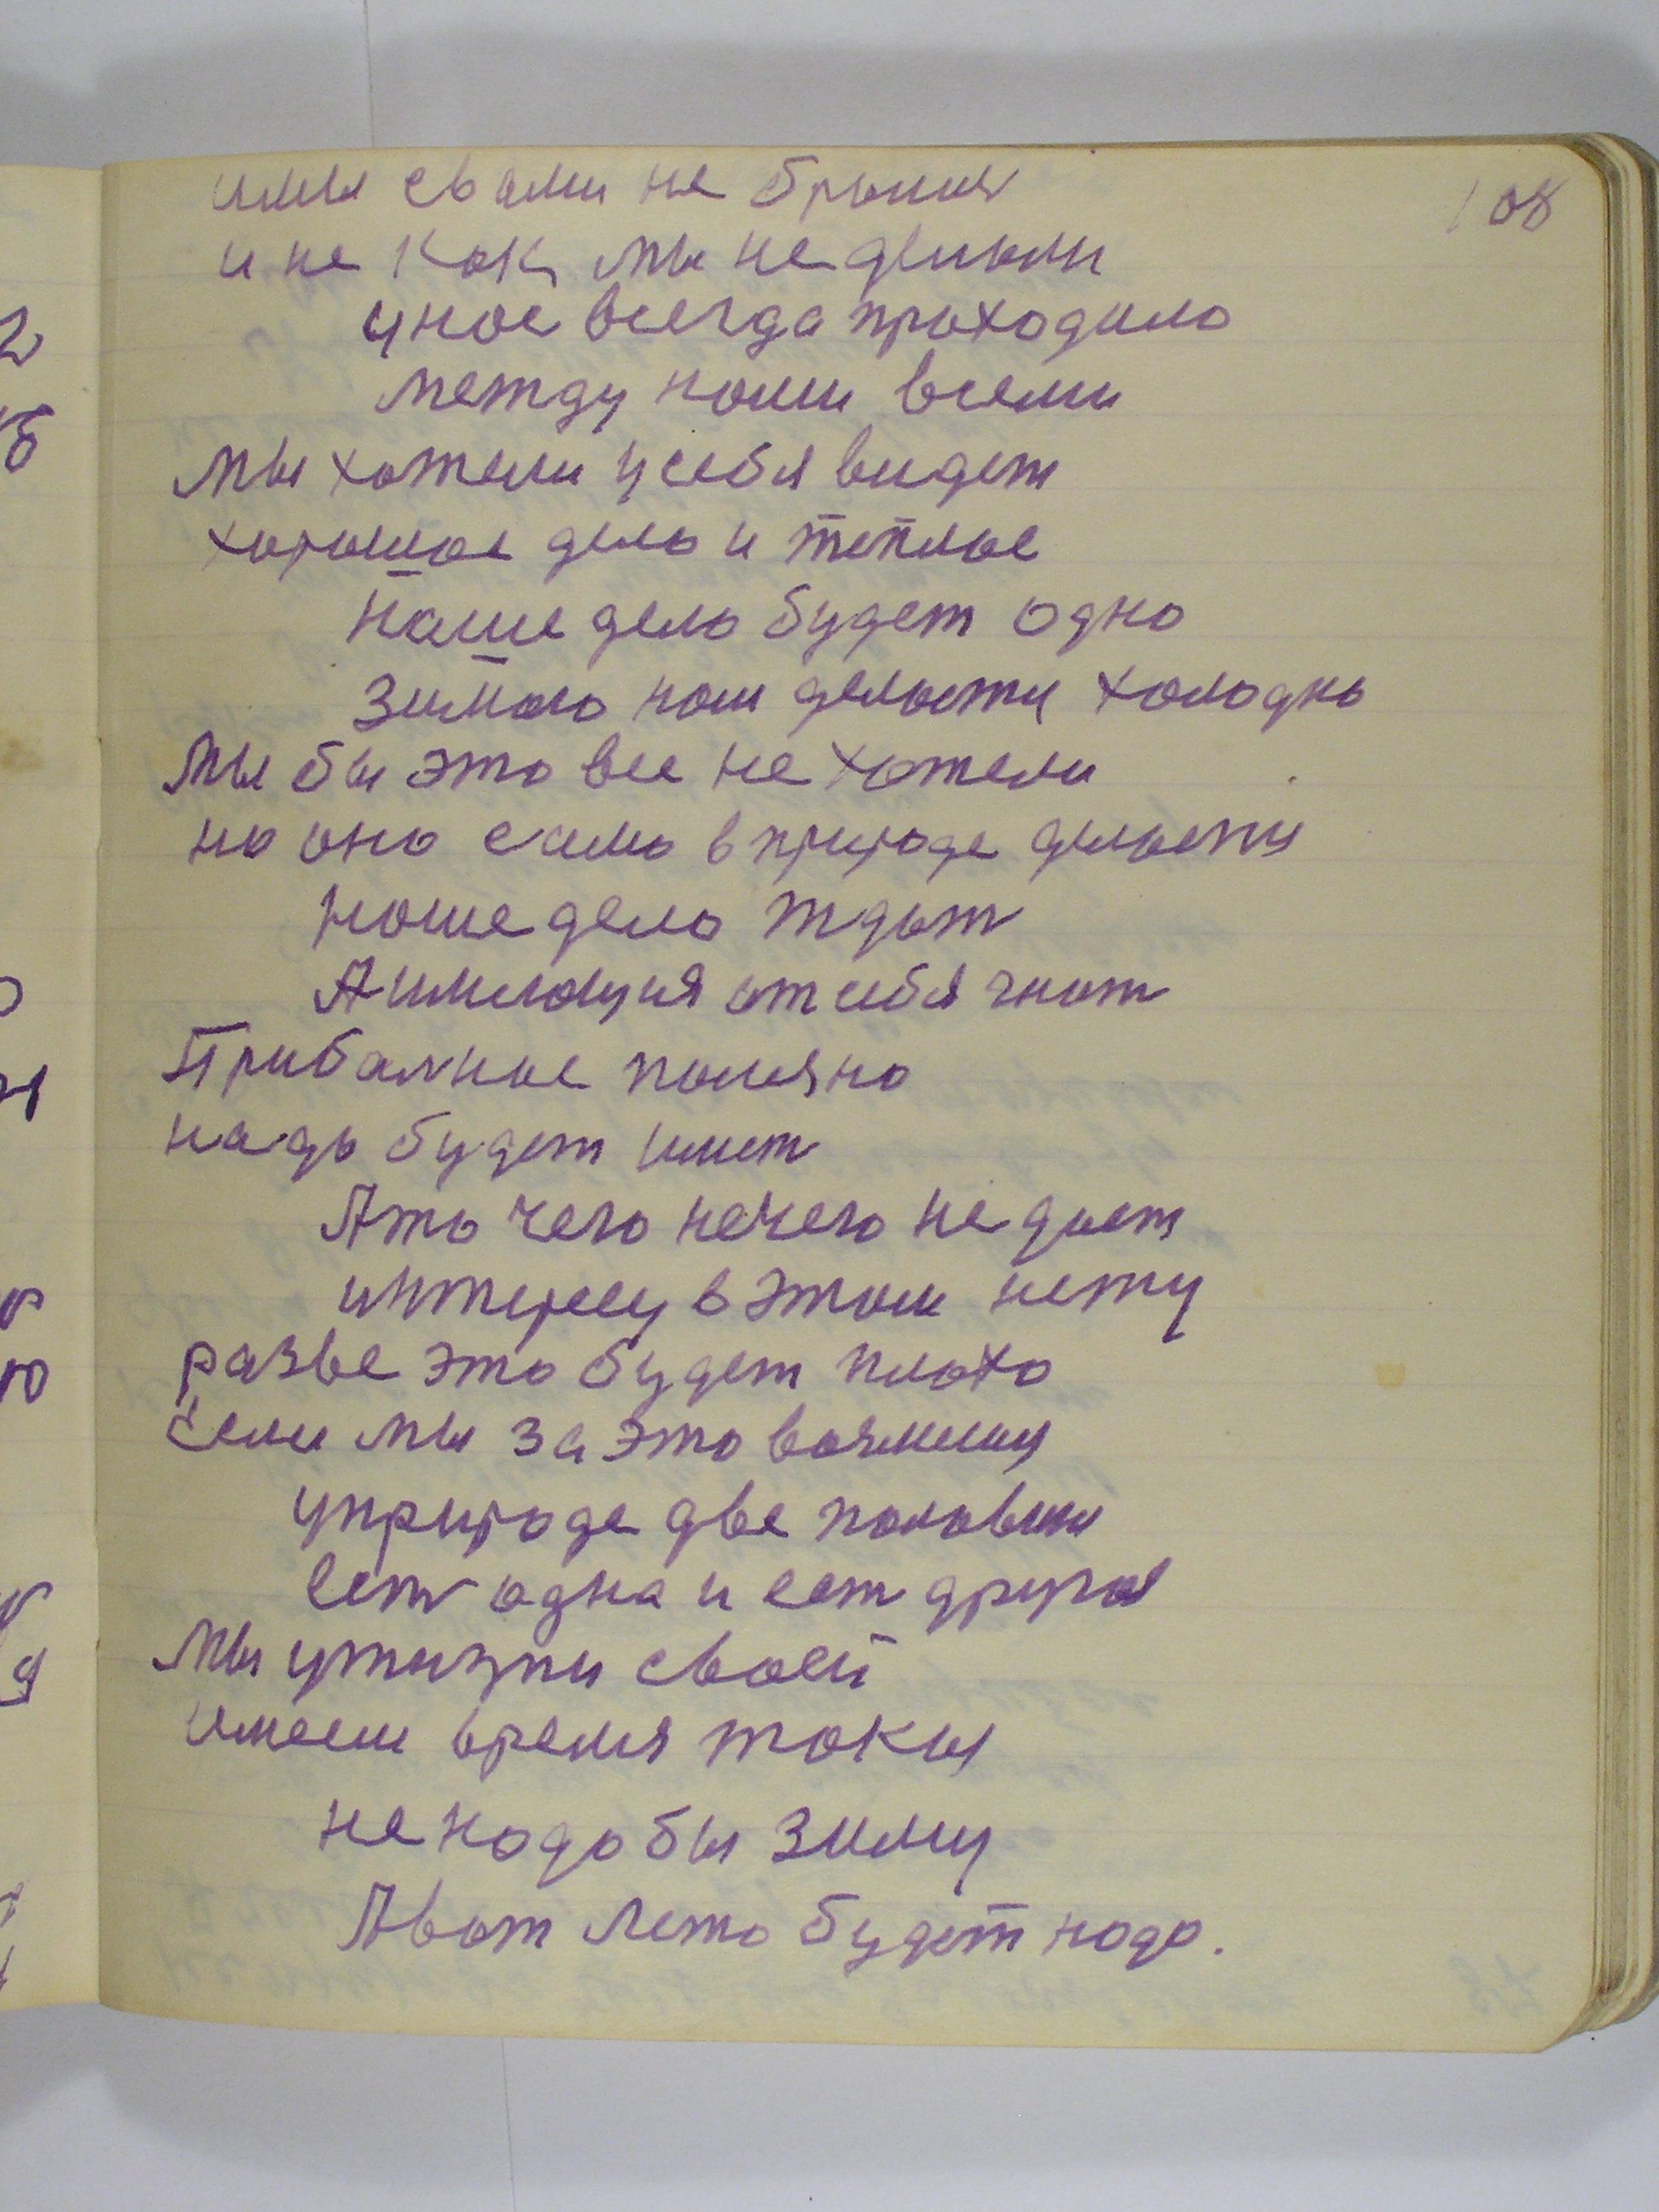 108
имы свами не брали
и не как, мы не делили
у нос всегда проходило
между нами всеми
мы хотели у себя видет
хорошое дело и теплое
Наше дело будет одно
Зимою нам делаетц холодно
Мы бы это все не хотели
но оно само в природе делаетц
Наше дело ждат
А от себя гнат
надо будет имет
А то чего нечего не дает
интересу в этом нету
разве это будет плохо
Если мы за это возмимц
у природе две половины
Есть одна и ест другая
Мы у жизни своей
имеем время токи
не надо бы зиму
А вот лето будет надо.